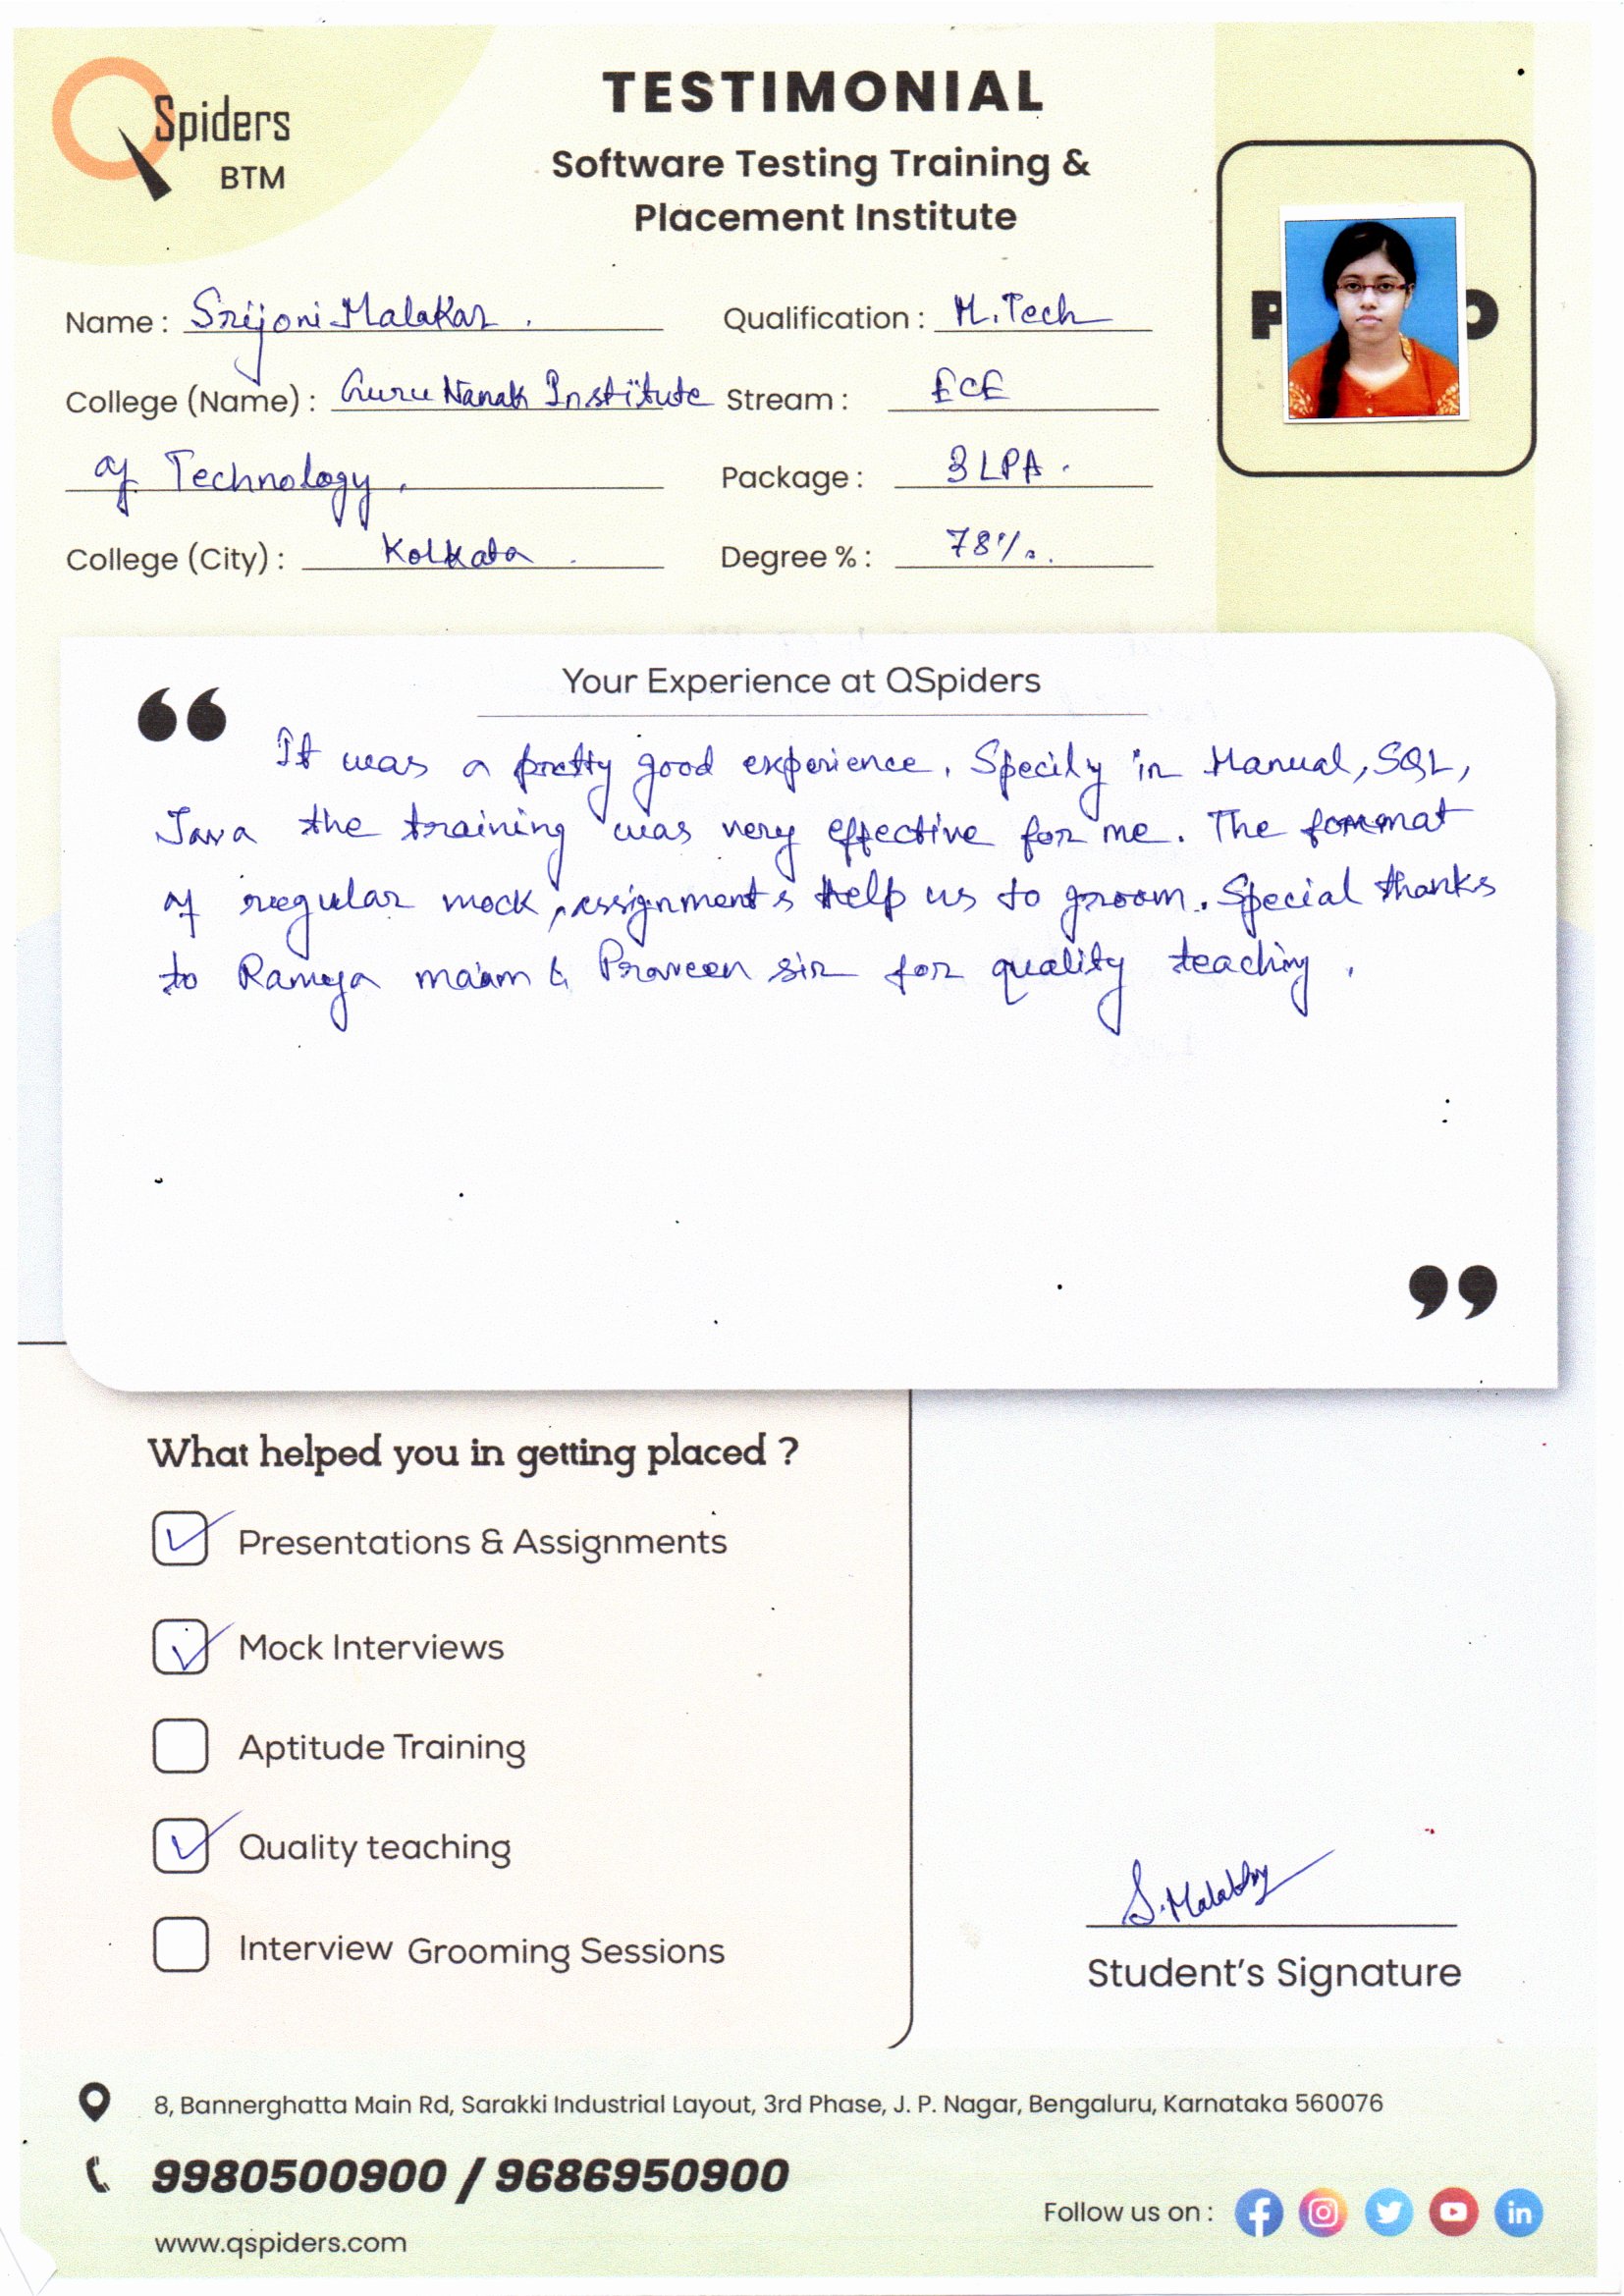 QSpiders
BTM
TESTIMONIAL
Software Testing Training &
Placement Institute
Name : Srijoni Malakar .
Qualification : M.Tech
College (Name) : Guru Nanak Institute
Stream : ECE
of Technology.
Package : 3 LPA .
College (City) : Kolkata .
Degree % : 78%.
P O
Your Experience at QSpiders
“ It was a pretty good experience. Specily in Manual, SQL,
Java the training was very effective for me. The format
of regular mock, assignments help us to groom. Special thanks
to Ramya maam & Praveen sir for quality teaching.
”
What helped you in getting placed ?
Presentations & Assignments
Mock Interviews
Aptitude Training
Quality teaching
Interview Grooming Sessions
S. Malakar
Student's Signature
8, Bannerghatta Main Rd, Sarakki Industrial Layout, 3rd Phase, J. P. Nagar, Bengaluru, Karnataka 560076
9980500900 / 9686950900
www.qspiders.com
Follow us on :